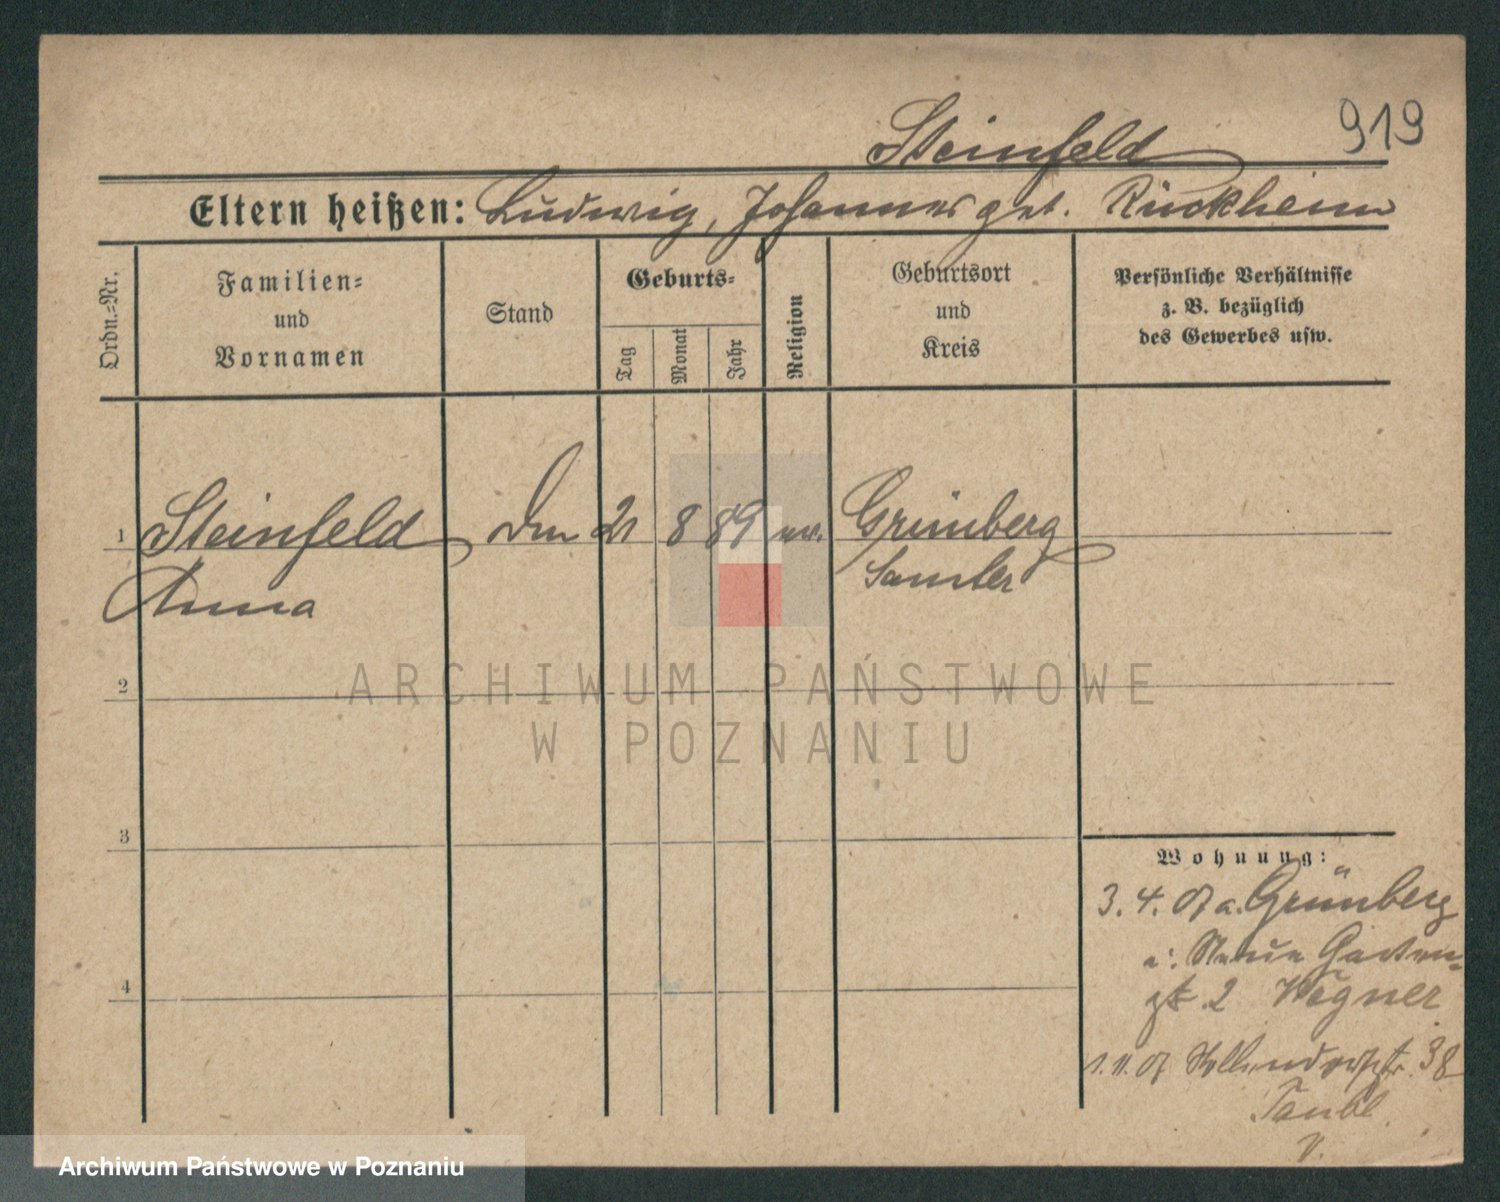 919
Steinfeld
Eltern heißen: Ludwig, Johanne geb. Rückheim
Ordn.-Nr.
Familien-
und
Vornamen
Stand
Geburts-
Tag
Monat
Jahr
Religion
Geburtsort
und
Kreis
Persönliche Verhältnisse
z. B. bezüglich
des Gewerbes usw.
1 Steinfeld 21 8 89 ev. Grünberg
Anna Samter
2
3
4
Wohnung:
3. 4. 07 a. Grünberg
i. Neue Garten-
2 Wegner
38
ARCHIWUM PAŃSTWOWE
W POZNANIU
Archiwum Państwowe w Poznaniu